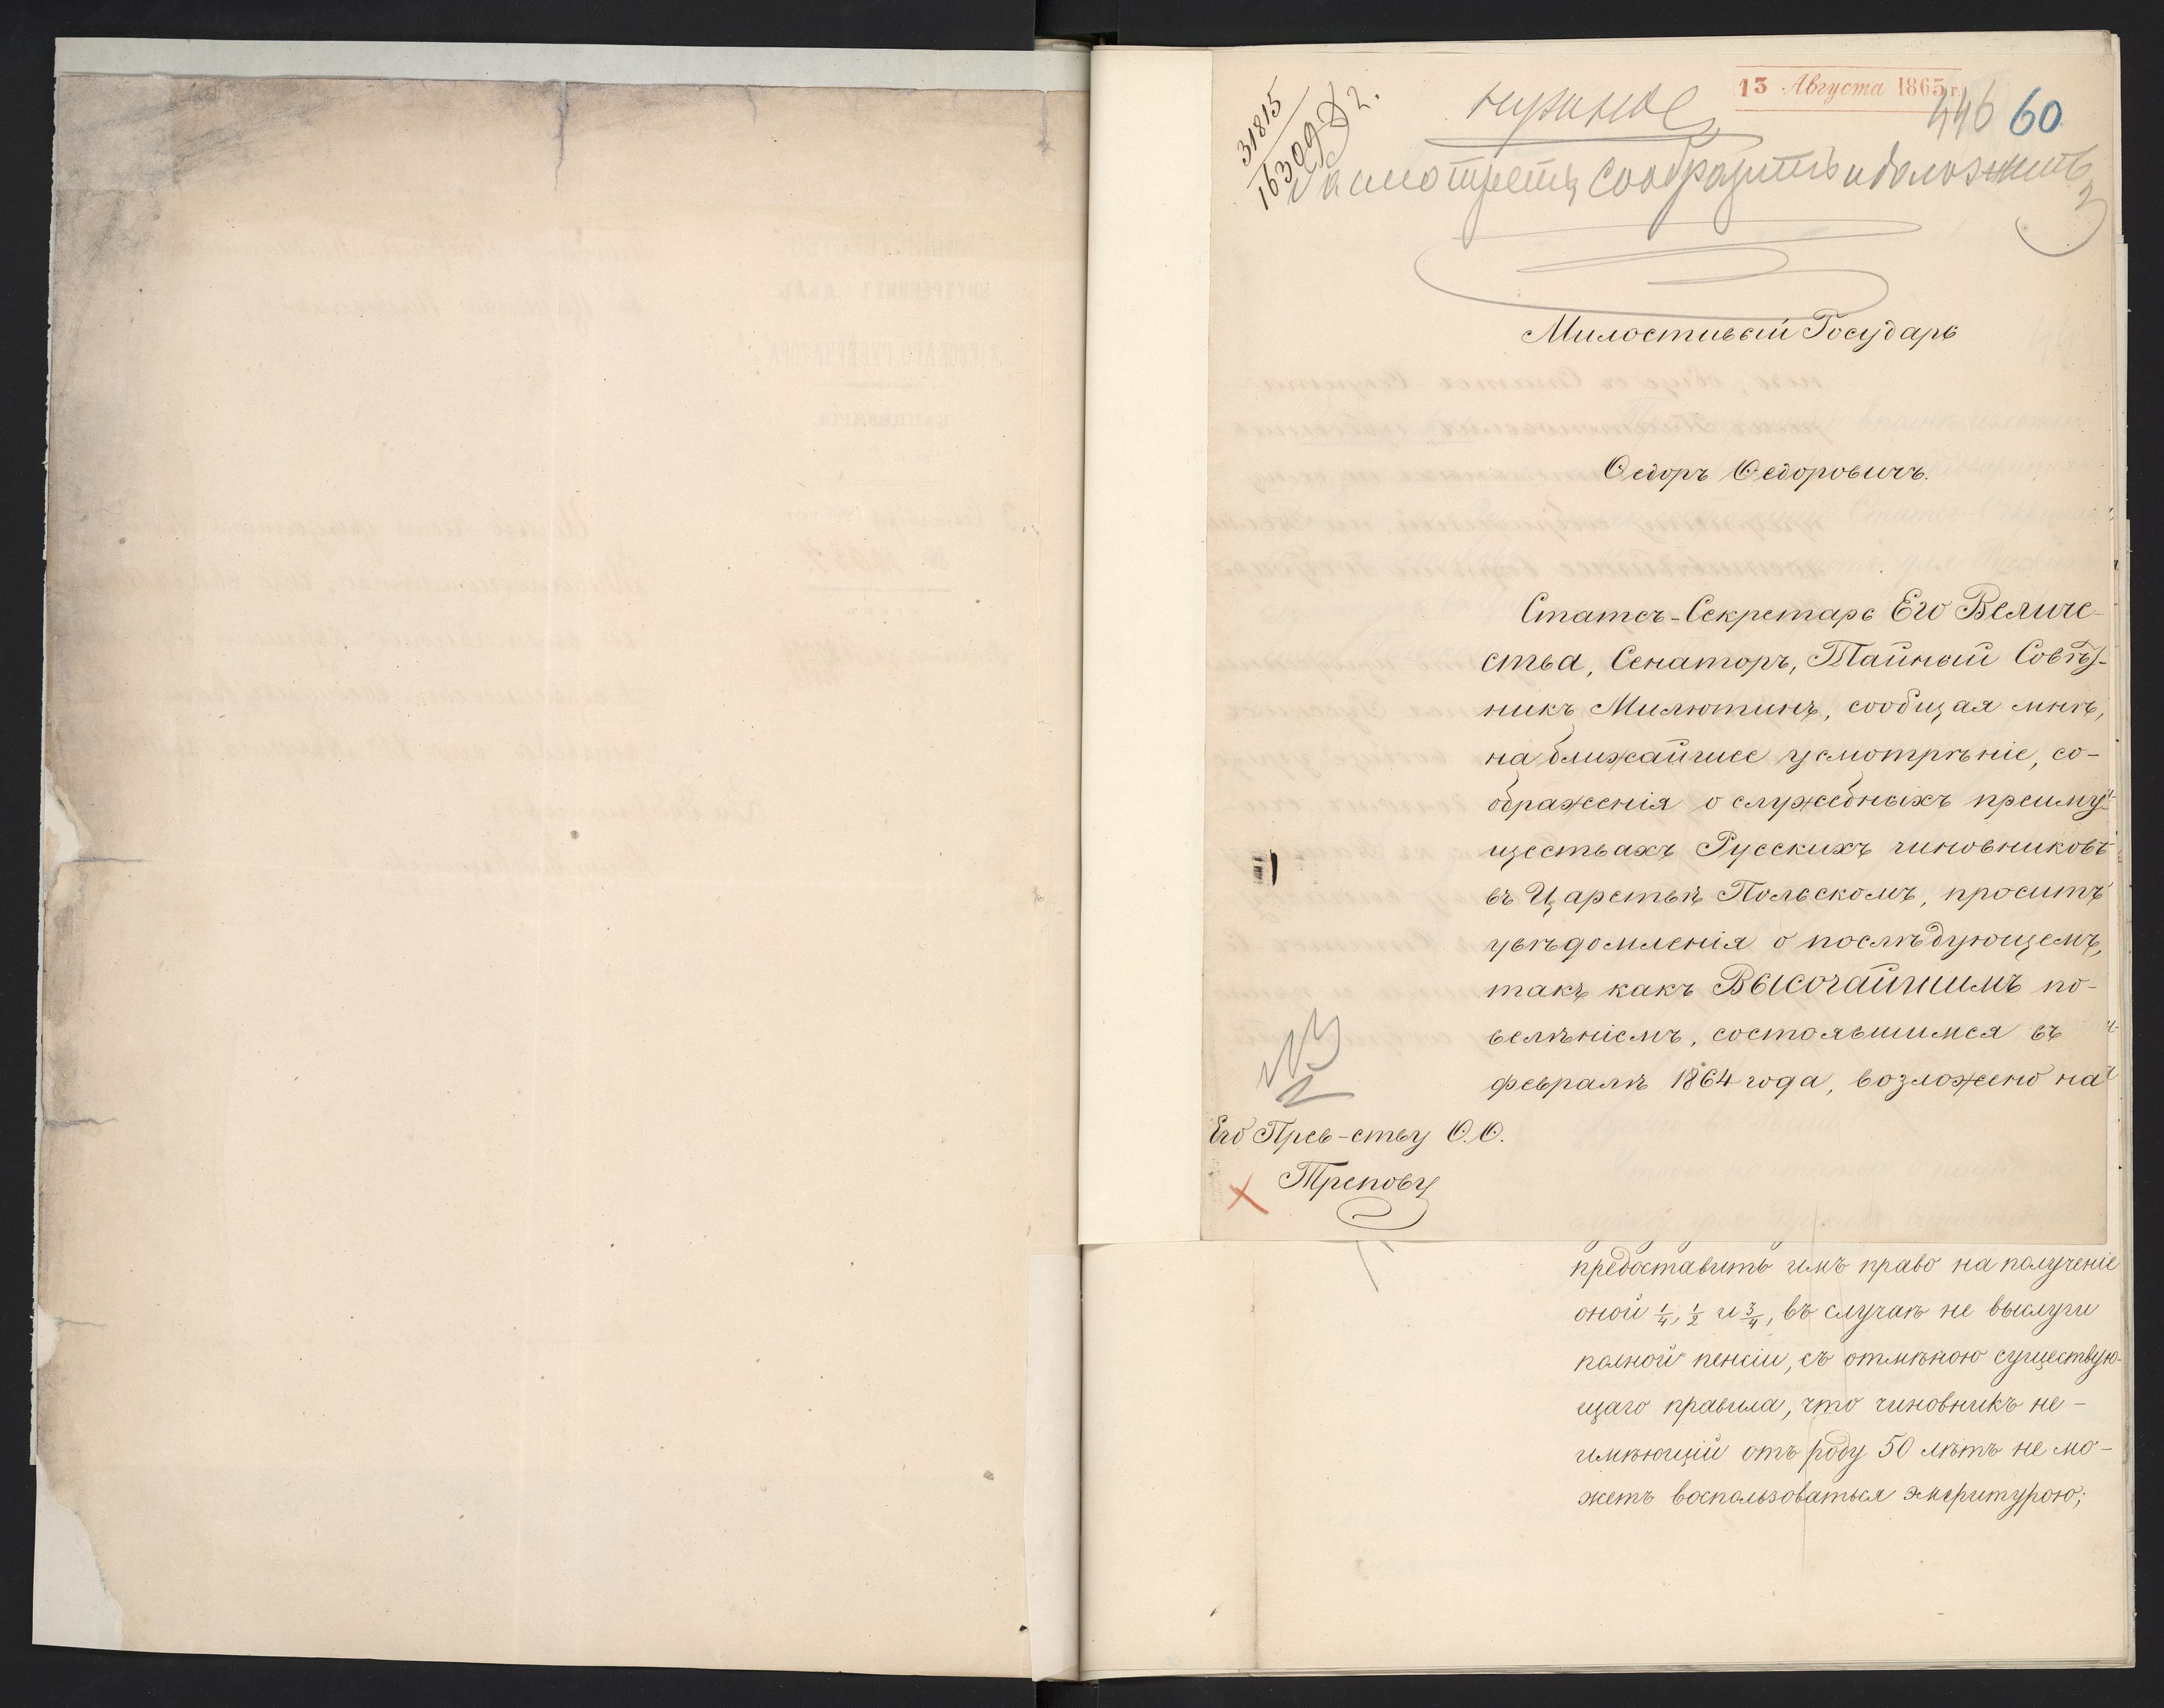 31815
16309
2.
нужное
13 Августа 1865 г.
446 60
Рассмотреть сообразить и доложить
Милостивый Государь
Ѳедоръ Ѳедоровичъ.
Статсъ-Секретарь Его Величе-
ства, Сенаторъ, Тайный Совѣт-
никъ Милютинъ, сообщая мнѣ,
на ближайшее усмотрѣніе, со-
ображенія о служебныхъ преиму-
ществахъ Русскихъ чиновниковъ
въ Царствѣ Польскомъ, проситъ
увѣдомленія о послѣдующемъ,
такъ какъ Высочайшимъ по-
велѣніемъ, состоявшимся въ
февралѣ 1864 года, возложено на
Его Прев-ству Ѳ. Ѳ.
Трепову
предоставить имъ право на полученіе
оной 1/4, 1/2 и 3/4, въ случаѣ не выслуги
полной пенсіи, съ отмѣною существую-
щаго правила, что чиновникъ не-
имѣющій отъ роду 50 лѣтъ не мо-
жетъ воспользоваться эмеритурою;